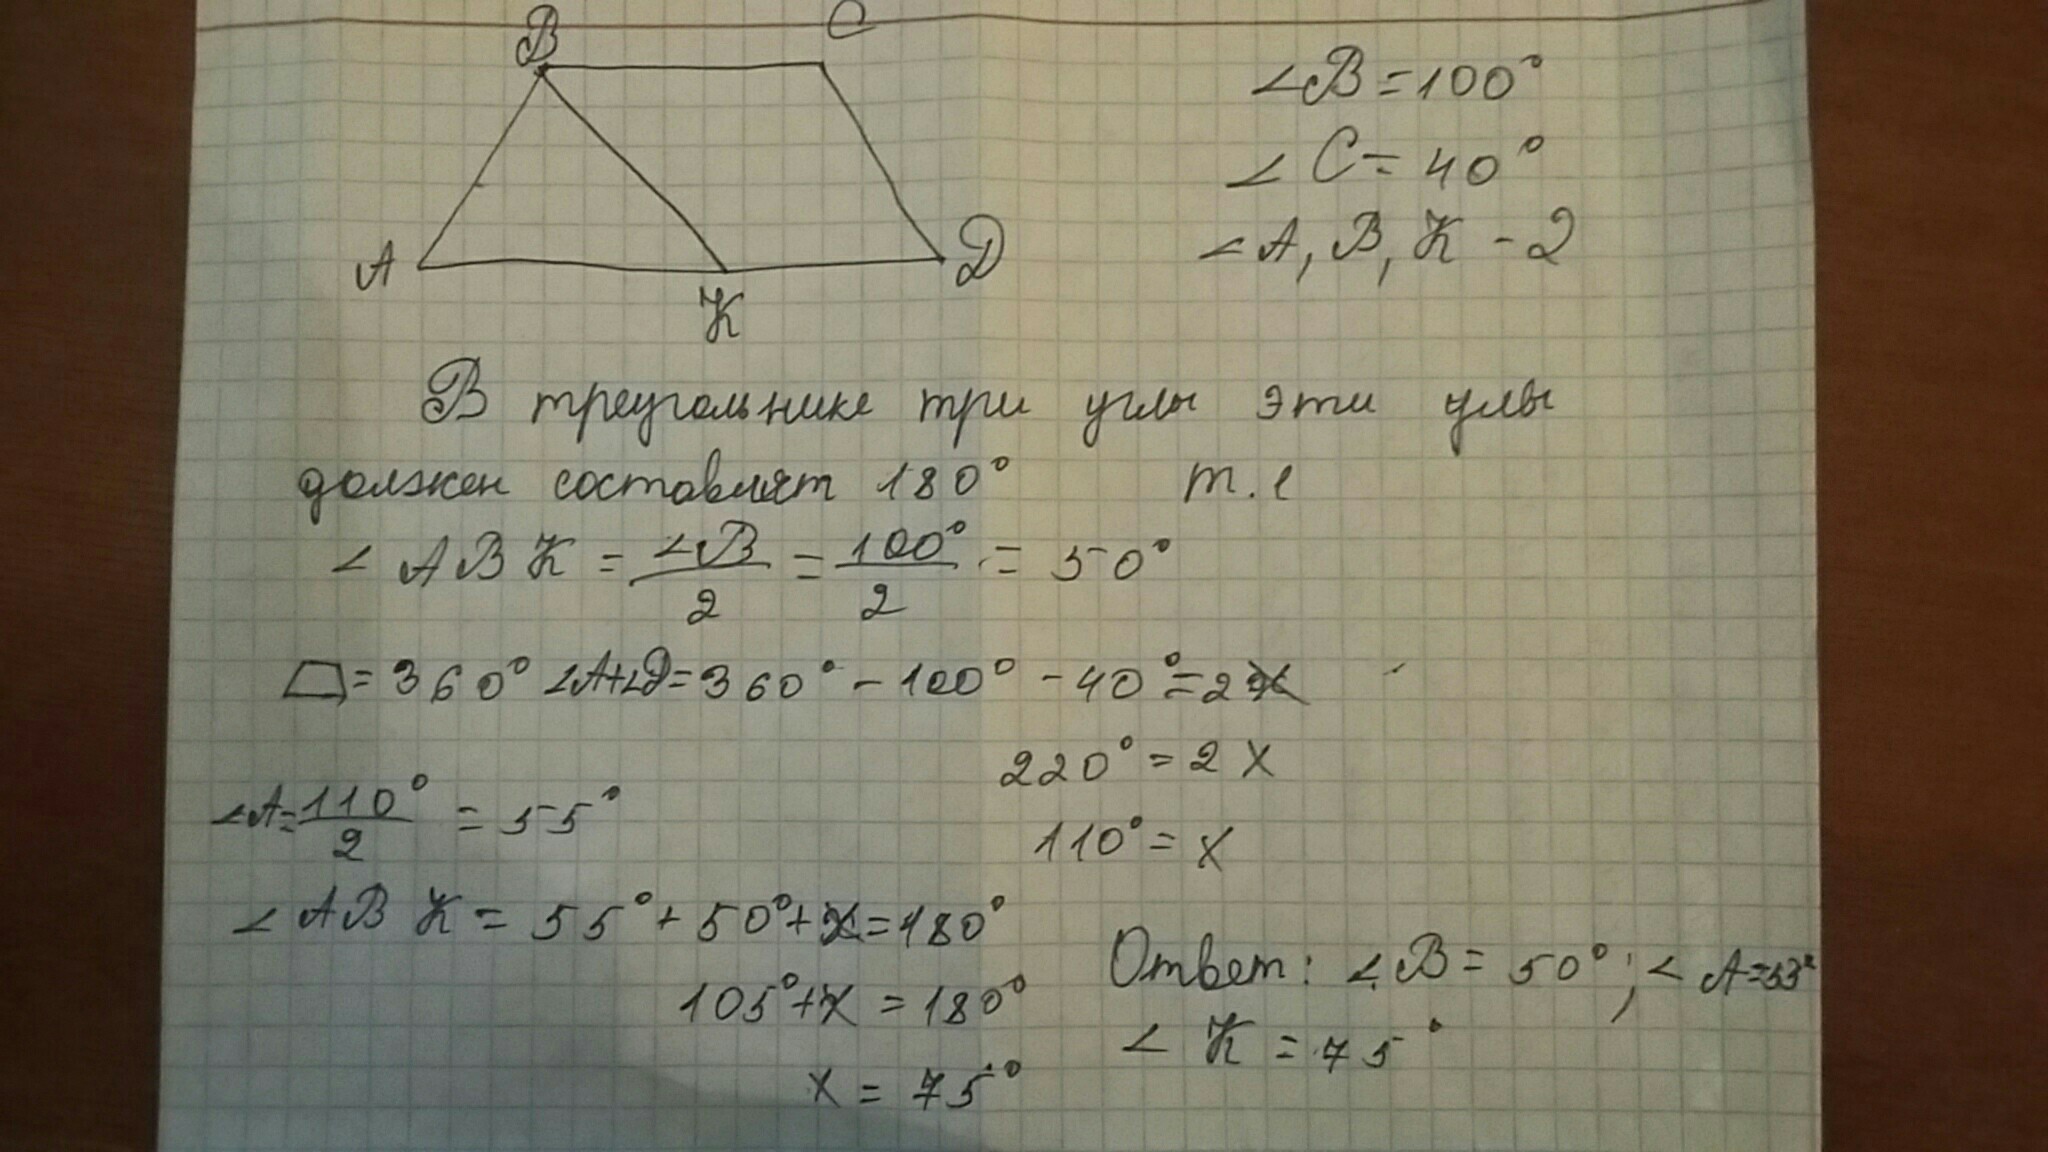 B C
A K D
∠B = 100°
∠C = 40°
∠A, B, K - ?
В треугольнике три углы эти улы
должен составлят 180° т.е
∠ABK = ∠B/2 = 100°/2 = 50°
⏢ = 360° ∠A+∠D = 360° - 100° - 40° = 2x
220° = 2x
∠A = 110°/2 = 55°
110° = x
∠ABK = 55° + 50° + x = 180°
105° + x = 180°
x = 75°
Ответ: ∠B = 50°; ∠A = 55°
∠K = 75°